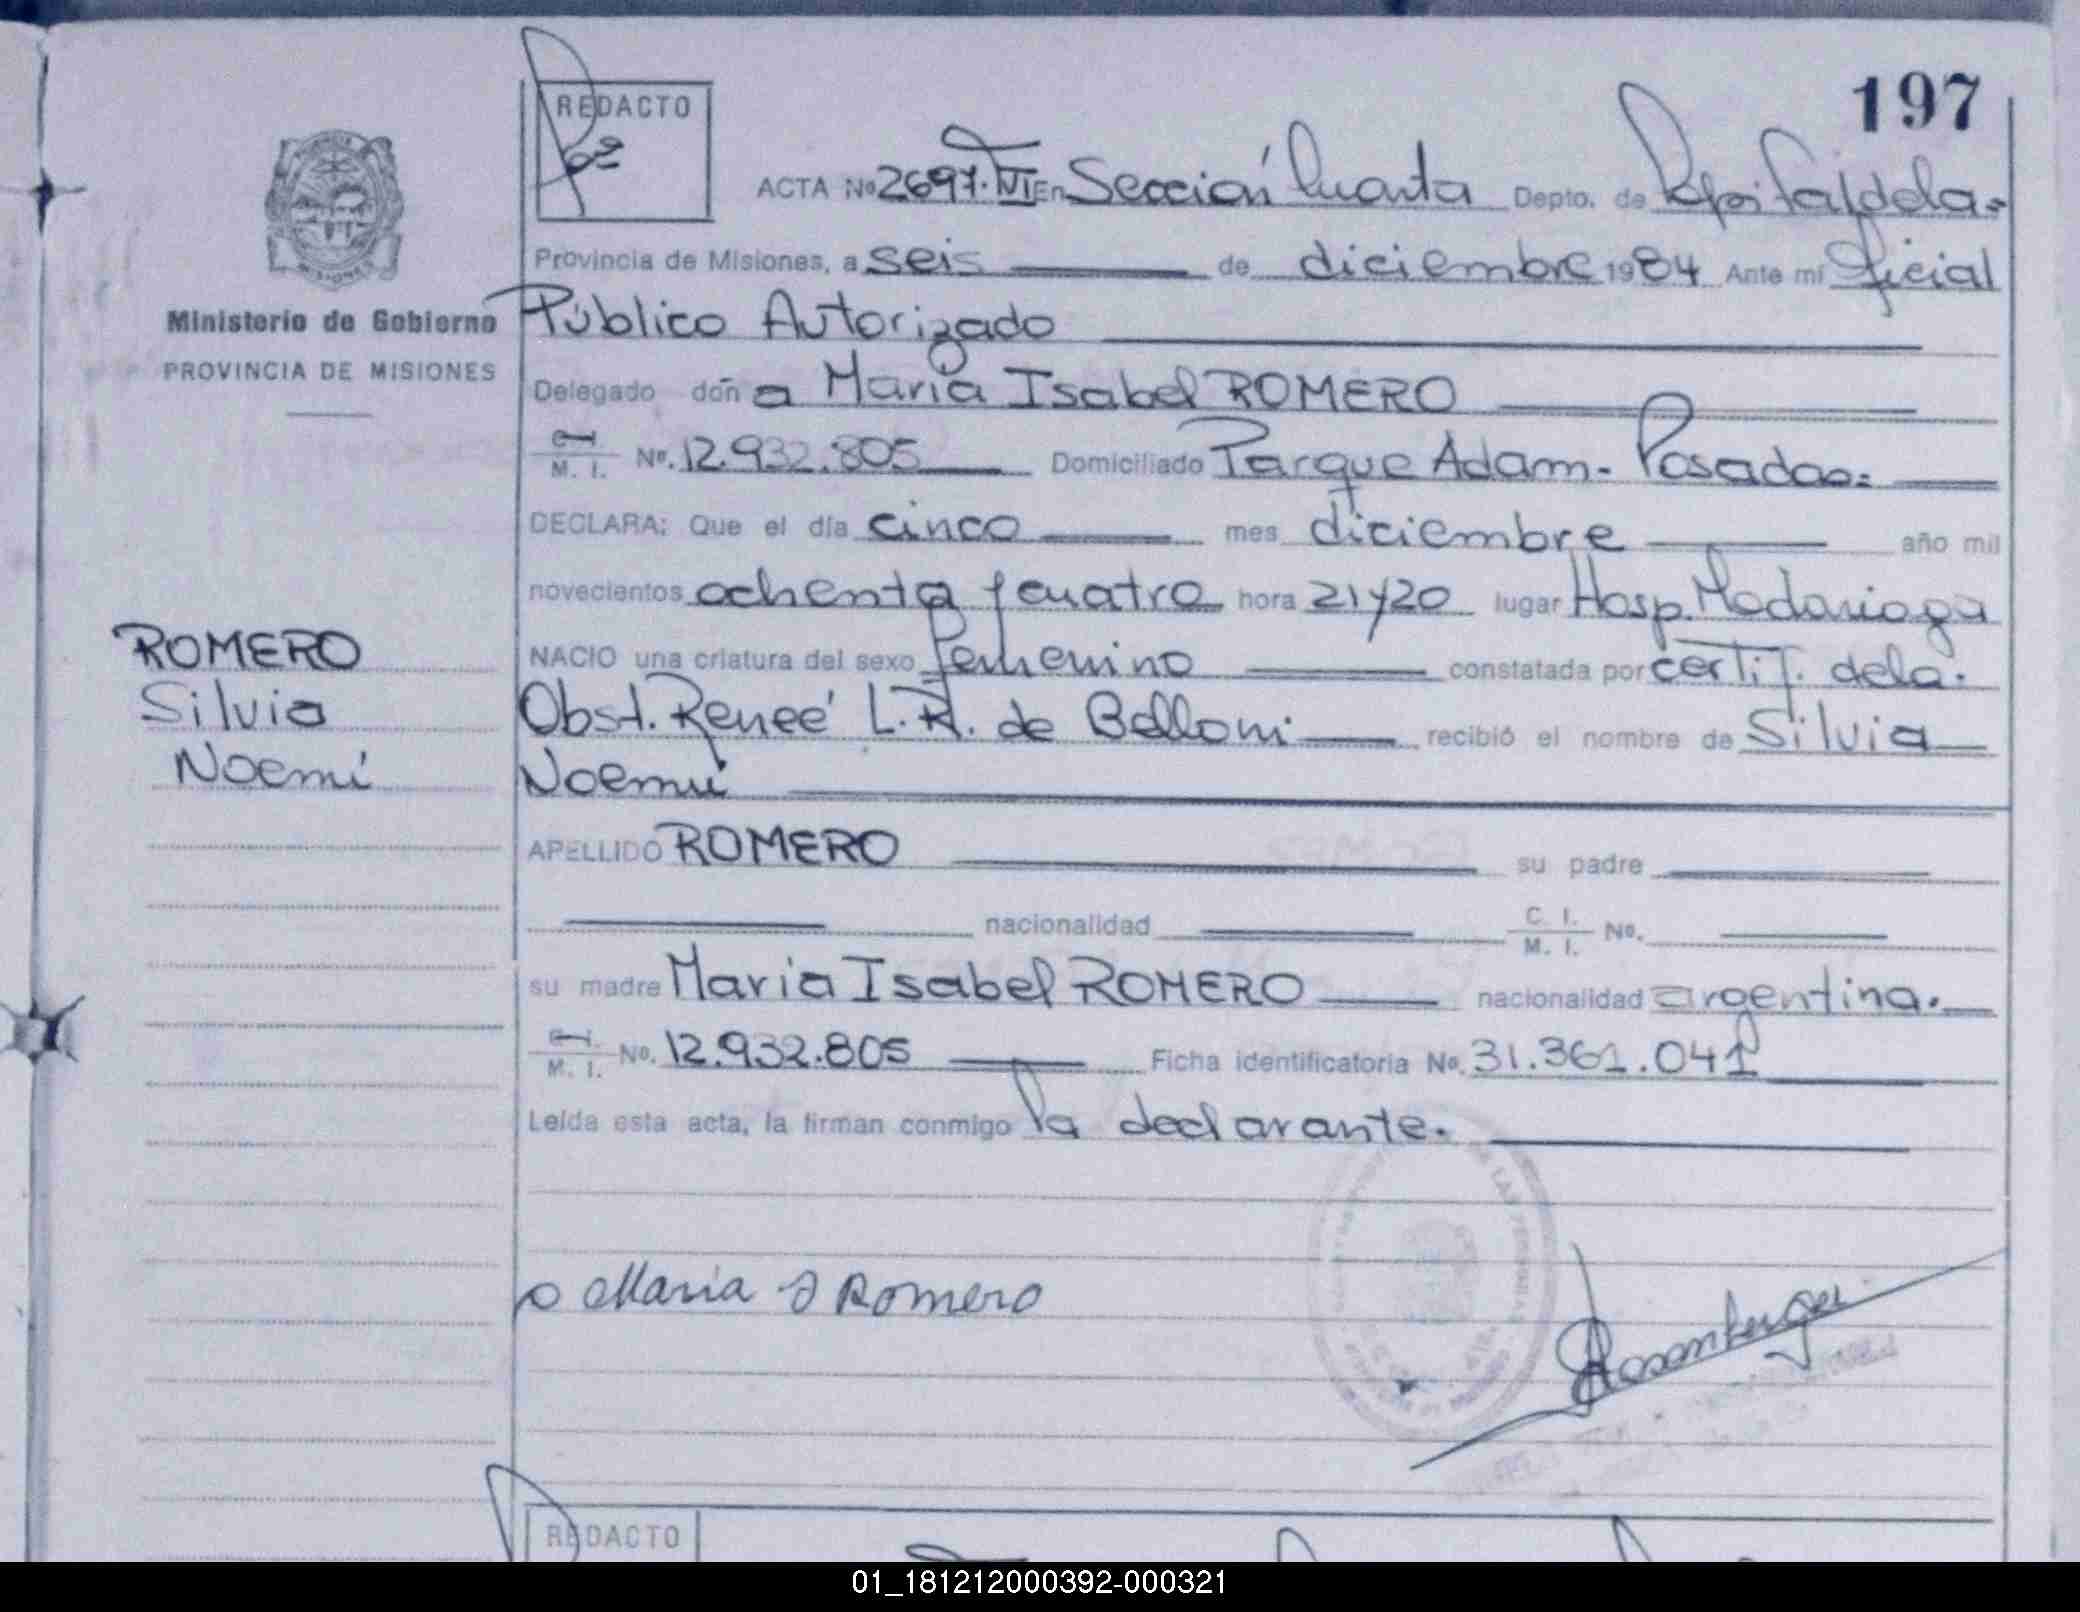 197
REDACTO
ACTA Nº 2697. T VI En Sección Cuarta Depto. de Capital de la.
Provincia de Misiones, a seis de diciembre 1984 Ante mí Oficial
Ministerio de Gobierno
Público Autorizado
PROVINCIA DE MISIONES
Delegado doña María Isabel ROMERO
M. I. Nº. 12.932.805 Domiciliado Parque Adam. Posadas.
DECLARA: Que el día cinco mes diciembre año mil
novecientos ochenta y cuatro hora 21 y 20 lugar Hosp. Madariaga
ROMERO
NACIO una criatura del sexo femenino constatada por certif. de la.
Silvia
Obst. Reneé L. R. de Belloni recibió el nombre de Silvia
Noemí
Noemí
APELLIDO ROMERO su padre
nacionalidad C. I. M. I. Nº.
su madre María Isabel ROMERO nacionalidad argentina.
C. I. M. I. Nº. 12.932.805 Ficha identificatoria Nº. 31.361.041
Leída esta acta, la firman conmigo la declarante.
Maria I Romero
Rosenberger
REDACTO
01_181212000392-000321